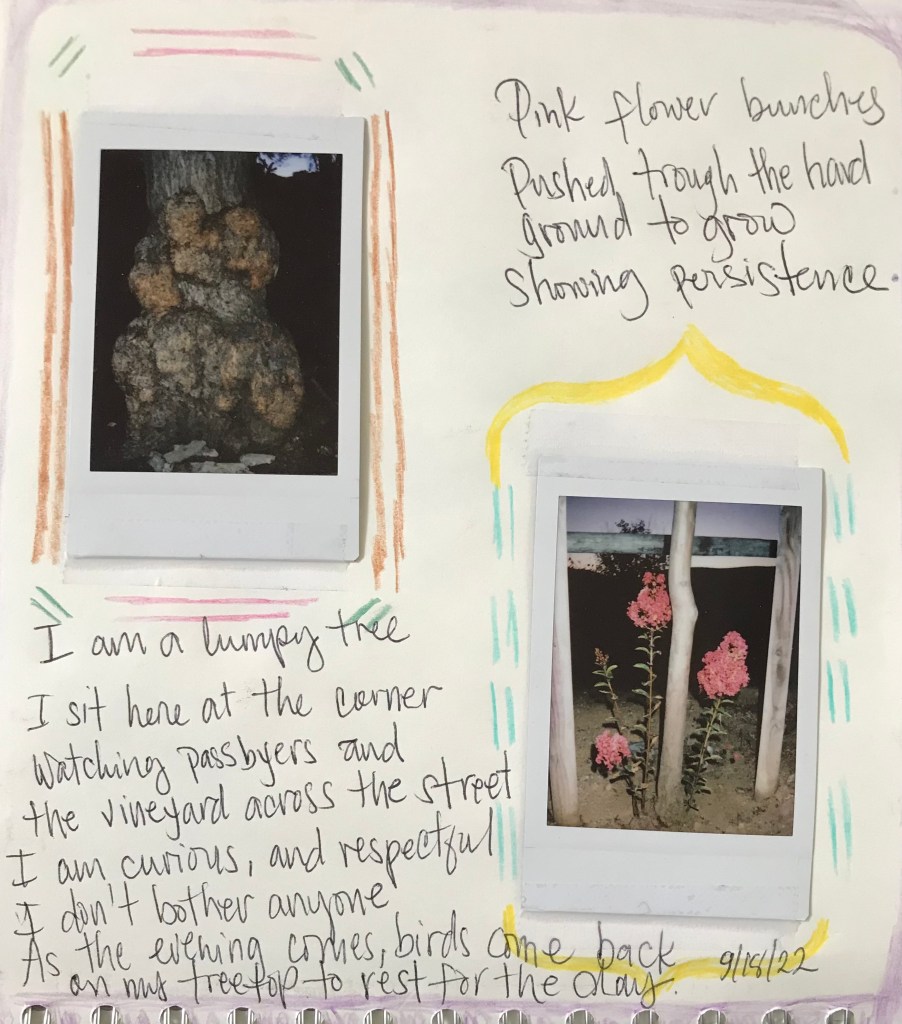 Pink flower bunches
Pushed trough the hard
ground to grow
showing persistence.
I am a lumpy tree
I sit here at the corner
watching passbyers and
the vineyard across the street
I am curious, and respectful
I don't bother anyone
As the evening comes, birds come back
on my treetop to rest for the day.
9/18/22